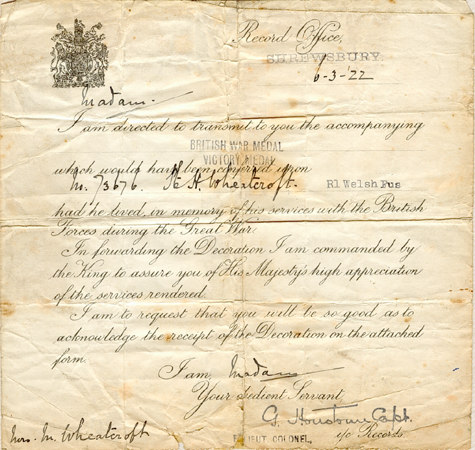 Record Office,
SHREWSBURY.
6-3-'22
Madam.
I am directed to transmit to you the accompanying
BRITISH WAR MEDAL
VICTORY MEDAL
which would have been conferred upon
No. 73676. H. Wheatcroft. Rl Welsh Fus
had he lived, in memory of his services with the British
Forces during the Great War.
In forwarding the Decoration I am commanded by
the King to assure you of His Majesty's high appreciation
of the services rendered.
I am to request that you will be so good as to
acknowledge the receipt of the Decoration on the attached
form.
I am, Madam
Your obedient Servant,
Capt.
LIEUT COLONEL, i/c Records.
Mrs. M. Wheatcroft